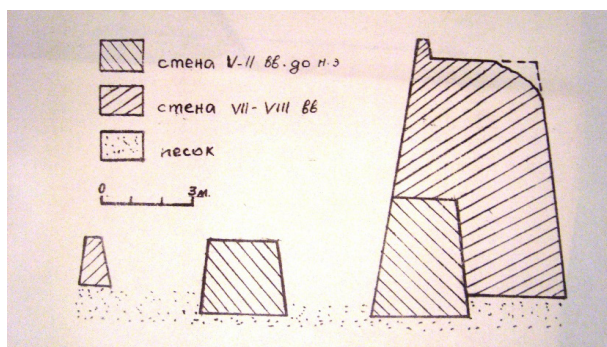 стена V-II вв. до н.э
стена VII-VIII вв
песок
0 3м.